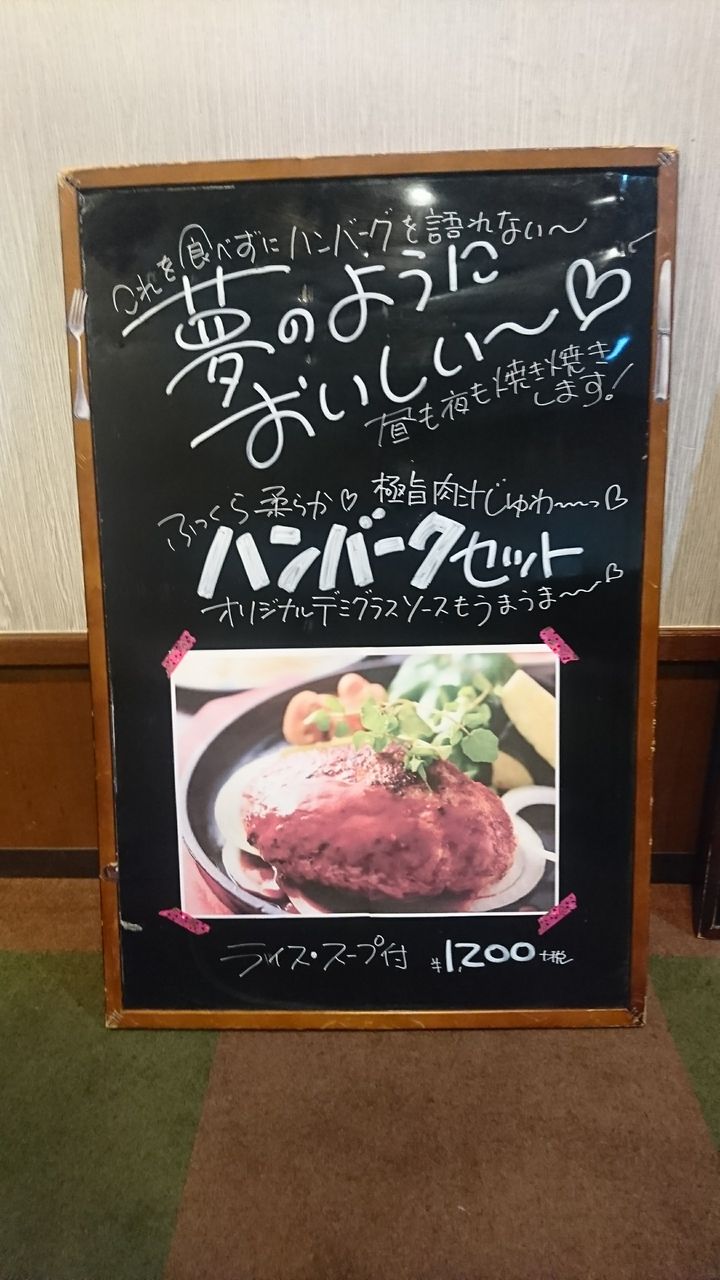 これを食べずにハンバーグを語れない〜
夢のように
おいしい〜♡
昼も夜も焼き焼き
します!
ふっくら柔らか♡ 極旨肉汁じゅわ〜〜っ♡
ハンバーグセット
オリジナルデミグラスソースもうまうま〜〜♡
ライス・スープ付 ¥1,200+税